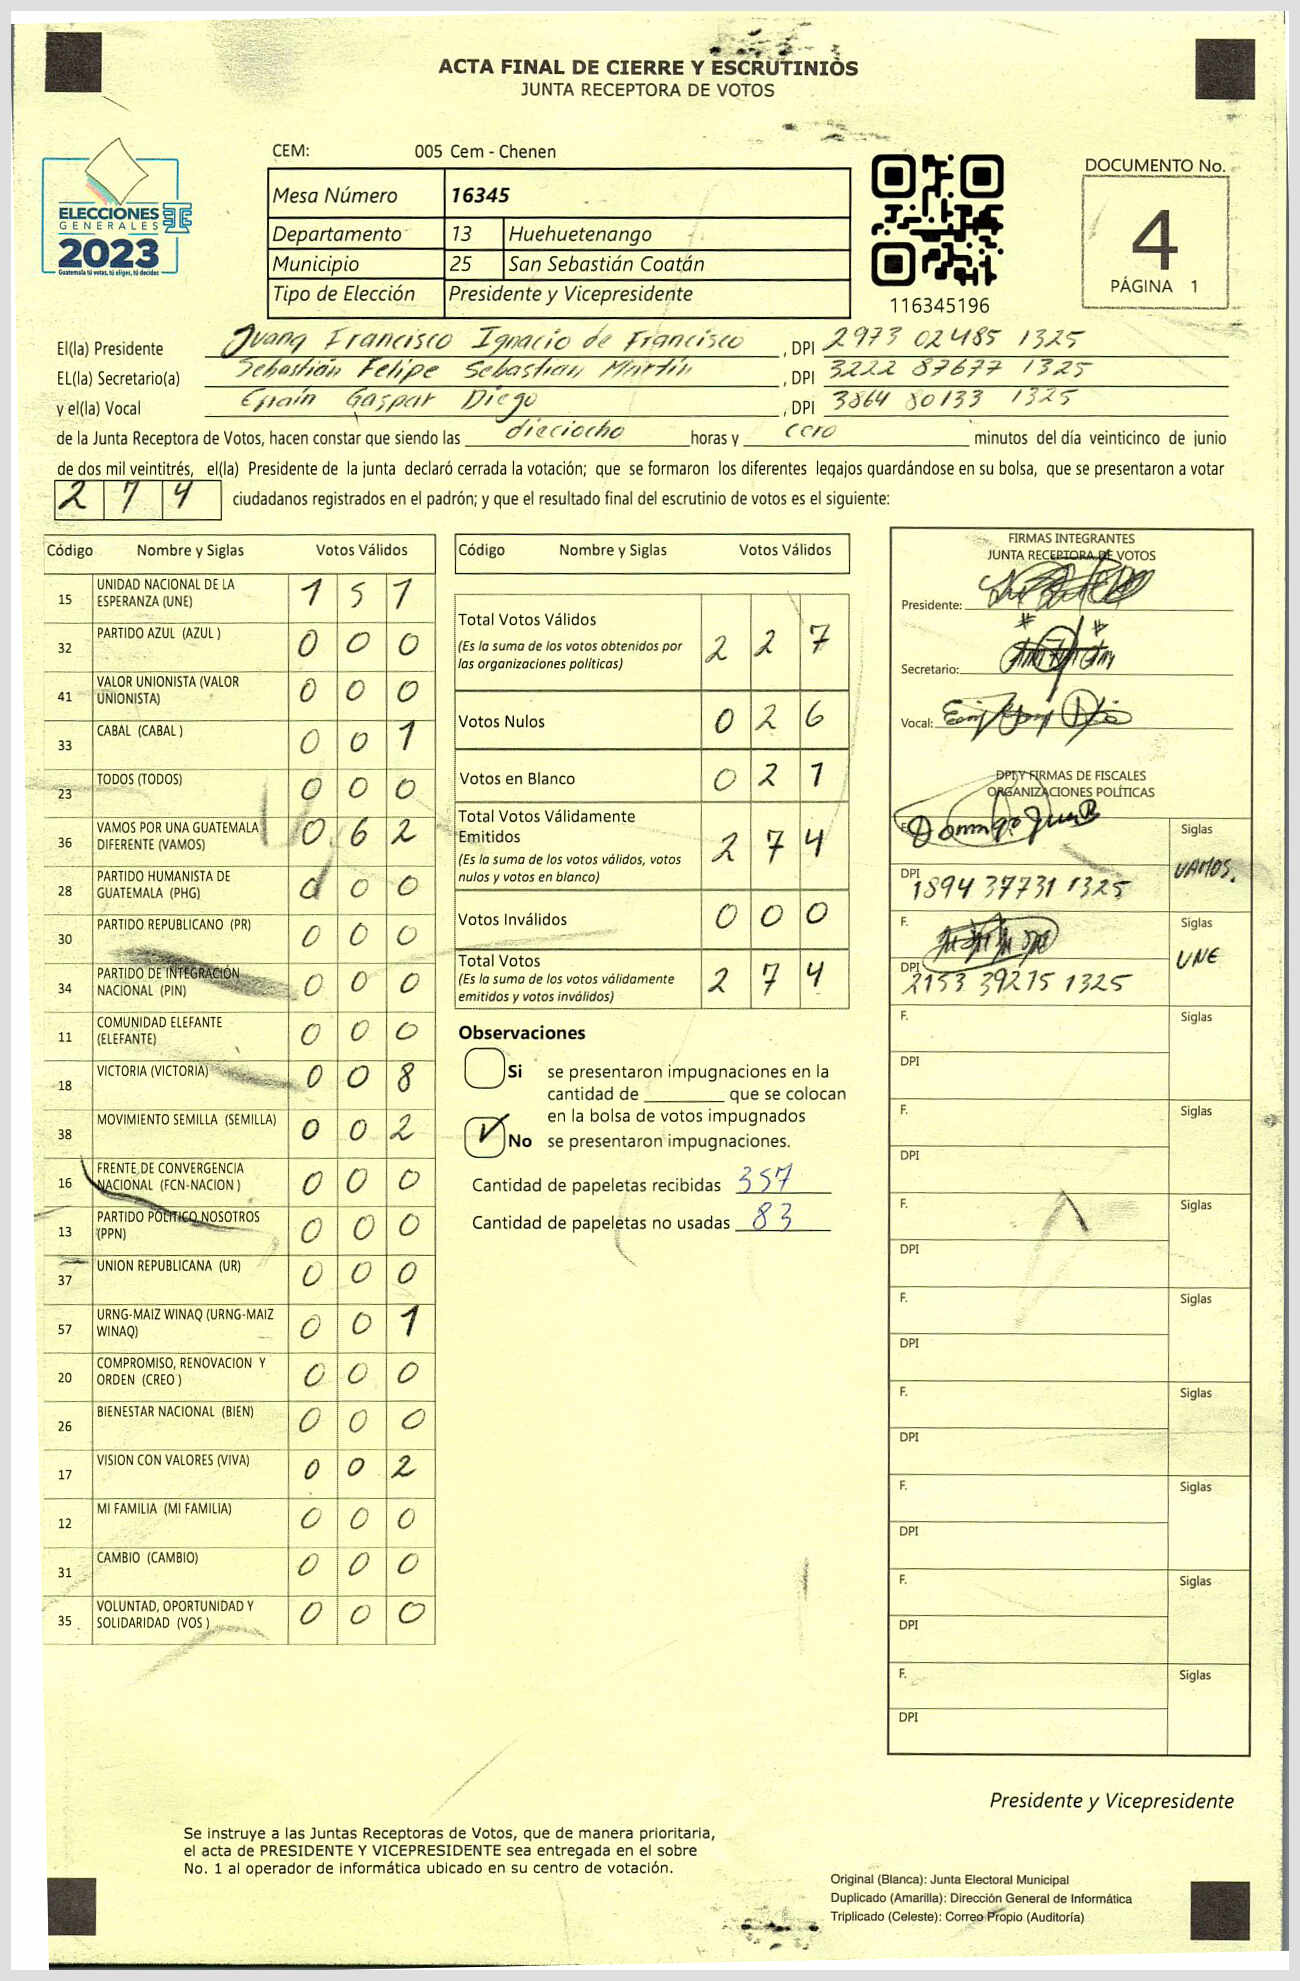 ACTA FINAL DE CIERRE Y ESCRUTINIOS
JUNTA RECEPTORA DE VOTOS
CEM: 005 Cem - Chenen
DOCUMENTO No.
4
PÁGINA 1
ELECCIONES
GENERALES
2023
Guatemala tú votas, tú eliges, tú decides
Mesa Número 16345
Departamento 13 Huehuetenango
Municipio 25 San Sebastián Coatán
Tipo de Elección Presidente y Vicepresidente
116345196
El(la) Presidente Juana Francisco Ignacio de Francisco , DPI 2973 02485 1325
EL(la) Secretario(a) Sebastián Felipe Sebastian Martín , DPI 3222 87677 1325
y el(la) Vocal Efraín Gaspar Diego , DPI 3864 80133 1325
de la Junta Receptora de Votos, hacen constar que siendo las dieciocho horas y cero minutos del día veinticinco de junio
de dos mil veintitrés, el(la) Presidente de la junta declaró cerrada la votación; que se formaron los diferentes legajos guardándose en su bolsa, que se presentaron a votar
2 7 4 ciudadanos registrados en el padrón; y que el resultado final del escrutinio de votos es el siguiente:
Código Nombre y Siglas Votos Válidos
15 UNIDAD NACIONAL DE LA ESPERANZA (UNE) 1 5 1
32 PARTIDO AZUL (AZUL ) 0 0 0
41 VALOR UNIONISTA (VALOR UNIONISTA) 0 0 0
33 CABAL (CABAL ) 0 0 1
23 TODOS (TODOS) 0 0 0
36 VAMOS POR UNA GUATEMALA DIFERENTE (VAMOS) 0 6 2
28 PARTIDO HUMANISTA DE GUATEMALA (PHG) 0 0 0
30 PARTIDO REPUBLICANO (PR) 0 0 0
34 PARTIDO DE INTEGRACIÓN NACIONAL (PIN) 0 0 0
11 COMUNIDAD ELEFANTE (ELEFANTE) 0 0 0
18 VICTORIA (VICTORIA) 0 0 8
38 MOVIMIENTO SEMILLA (SEMILLA) 0 0 2
16 FRENTE DE CONVERGENCIA NACIONAL (FCN-NACION ) 0 0 0
13 PARTIDO POLITICO NOSOTROS (PPN) 0 0 0
37 UNION REPUBLICANA (UR) 0 0 0
57 URNG-MAIZ WINAQ (URNG-MAIZ WINAQ) 0 0 1
20 COMPROMISO, RENOVACION Y ORDEN (CREO ) 0 0 0
26 BIENESTAR NACIONAL (BIEN) 0 0 0
17 VISION CON VALORES (VIVA) 0 0 2
12 MI FAMILIA (MI FAMILIA) 0 0 0
31 CAMBIO (CAMBIO) 0 0 0
35 VOLUNTAD, OPORTUNIDAD Y SOLIDARIDAD (VOS ) 0 0 0
Código Nombre y Siglas Votos Válidos
Total Votos Válidos 2 2 7
(Es la suma de los votos obtenidos por
las organizaciones políticas)
Votos Nulos 0 2 6
Votos en Blanco 0 2 1
Total Votos Válidamente
Emitidos 2 7 4
(Es la suma de los votos válidos, votos
nulos y votos en blanco)
Votos Inválidos 0 0 0
Total Votos 2 7 4
(Es la suma de los votos válidamente
emitidos y votos inválidos)
Observaciones
Si se presentaron impugnaciones en la
cantidad de ________ que se colocan
en la bolsa de votos impugnados
No se presentaron impugnaciones.
Cantidad de papeletas recibidas 357
Cantidad de papeletas no usadas 83
FIRMAS INTEGRANTES
JUNTA RECEPTORA DE VOTOS
Presidente:
Secretario:
Vocal:
DPI Y FIRMAS DE FISCALES
ORGANIZACIONES POLÍTICAS
F. Domingo Juan Siglas
DPI 1894 37731 1325 VAMOS.
F. Siglas
DPI 2153 39215 1325 UNE
F. Siglas
DPI
F. Siglas
DPI
F. Siglas
DPI
F. Siglas
DPI
F. Siglas
DPI
F. Siglas
DPI
F. Siglas
DPI
F. Siglas
DPI
Presidente y Vicepresidente
Se instruye a las Juntas Receptoras de Votos, que de manera prioritaria,
el acta de PRESIDENTE Y VICEPRESIDENTE sea entregada en el sobre
No. 1 al operador de informática ubicado en su centro de votación.
Original (Blanca): Junta Electoral Municipal
Duplicado (Amarilla): Dirección General de Informática
Triplicado (Celeste): Correo Propio (Auditoría)